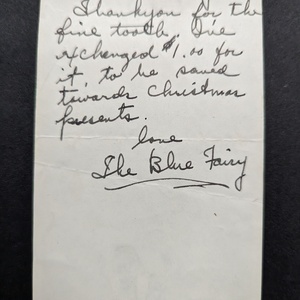 Thankyou for the
fine tooth. I've
exchanged $1.00 for
it, to be saved
towards Christmas
presents.
love
The Blue Fairy